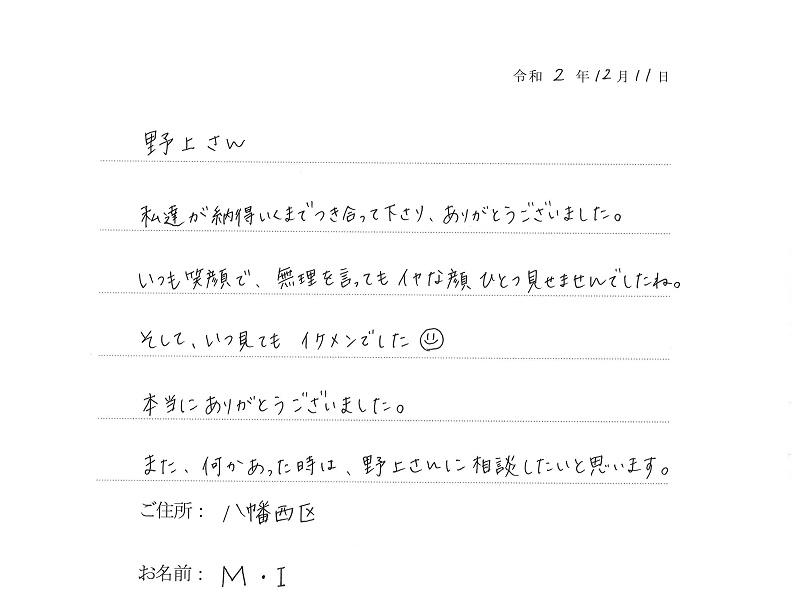 令和 2 年 12 月 11 日
野上さん
私達が納得いくまでつき合って下さり、ありがとうございました。
いつも笑顔で、無理を言ってもイヤな顔ひとつ見せませんでしたね。
そして、いつ見ても イケメンでした☺
本当にありがとうございました。
また、何かあった時は、野上さんに相談したいと思います。
ご住所： 八幡西区
お名前： M・I